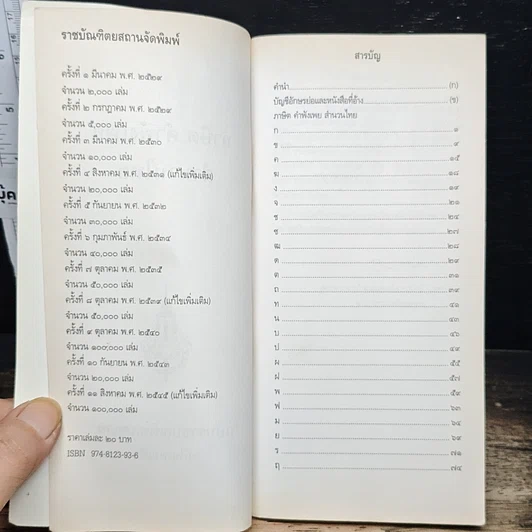 ราชบัณฑิตยสถานจัดพิมพ์
ครั้งที่ ๑ มีนาคม พ.ศ. ๒๕๒๙
จำนวน ๒,๐๐๐ เล่ม
ครั้งที่ ๒ กรกฎาคม พ.ศ. ๒๕๒๙
จำนวน ๕,๐๐๐ เล่ม
ครั้งที่ ๓ มีนาคม พ.ศ. ๒๕๓๐
จำนวน ๑๐,๐๐๐ เล่ม
ครั้งที่ ๔ สิงหาคม พ.ศ. ๒๕๓๑ (แก้ไขเพิ่มเติม)
จำนวน ๒๐,๐๐๐ เล่ม
ครั้งที่ ๕ กันยายน พ.ศ. ๒๕๓๒
จำนวน ๓๐,๐๐๐ เล่ม
ครั้งที่ ๖ กุมภาพันธ์ พ.ศ. ๒๕๓๔
จำนวน ๔๐,๐๐๐ เล่ม
ครั้งที่ ๗ ตุลาคม พ.ศ. ๒๕๓๕
จำนวน ๕๐,๐๐๐ เล่ม
ครั้งที่ ๘ ตุลาคม พ.ศ. ๒๕๓๙ (แก้ไขเพิ่มเติม)
จำนวน ๕๐,๐๐๐ เล่ม
ครั้งที่ ๙ ตุลาคม พ.ศ. ๒๕๔๐
จำนวน ๑๐๐,๐๐๐ เล่ม
ครั้งที่ ๑๐ กันยายน พ.ศ. ๒๕๔๓
จำนวน ๒๐,๐๐๐ เล่ม
ครั้งที่ ๑๑ สิงหาคม พ.ศ. ๒๕๔๕ (แก้ไขเพิ่มเติม)
จำนวน ๑๐๐,๐๐๐ เล่ม
ราคาเล่มละ ๒๐ บาท
ISBN 974-8123-93-6
สารบัญ
คำนำ (ก)
บัญชีอักษรย่อและหนังสือที่อ้าง (ช)
ภาษิต คำพังเพย สำนวนไทย
ก ๑
ข ๙
ค ๑๕
ฆ ๑๘
ง ๑๙
จ ๒๑
ช ๒๔
ซ ๒๗
ฒ ๒๘
ด ๒๙
ต ๓๑
ถ ๓๙
ท ๔๑
น ๔๓
บ ๔๖
ป ๔๙
ผ ๕๕
ฝ ๕๗
พ ๕๙
ฟ ๖๓
ม ๖๔
ย ๖๙
ร ๗๑
ฤ ๗๔